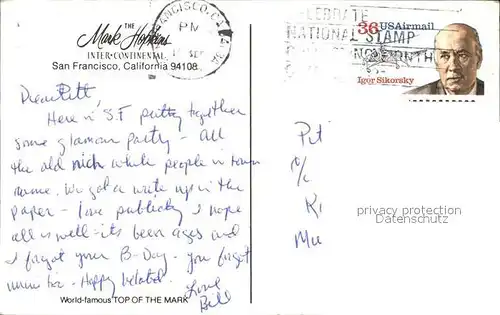 THE
Mark Hopkins
INTER·CONTINENTAL
San Francisco, California 94108
FRANCISCO, CA
PM
SEP
CELEBRATE
NATIONAL STAMP
COLLECTING MONTH
36 USAirmail
Igor Sikorsky
Dear Pitt
Here in S.F putting together
some glamour party - All
the old rich white people in town
name. We got a write up in the
paper - love publicity I hope
all is well - its been ages and
I forgot your B-Day - you forgot
mine too - Happy belated.
Love
Bill
Pit
c/o
Ki
Mu
privacy protection
Datenschutz
World-famous TOP OF THE MARK